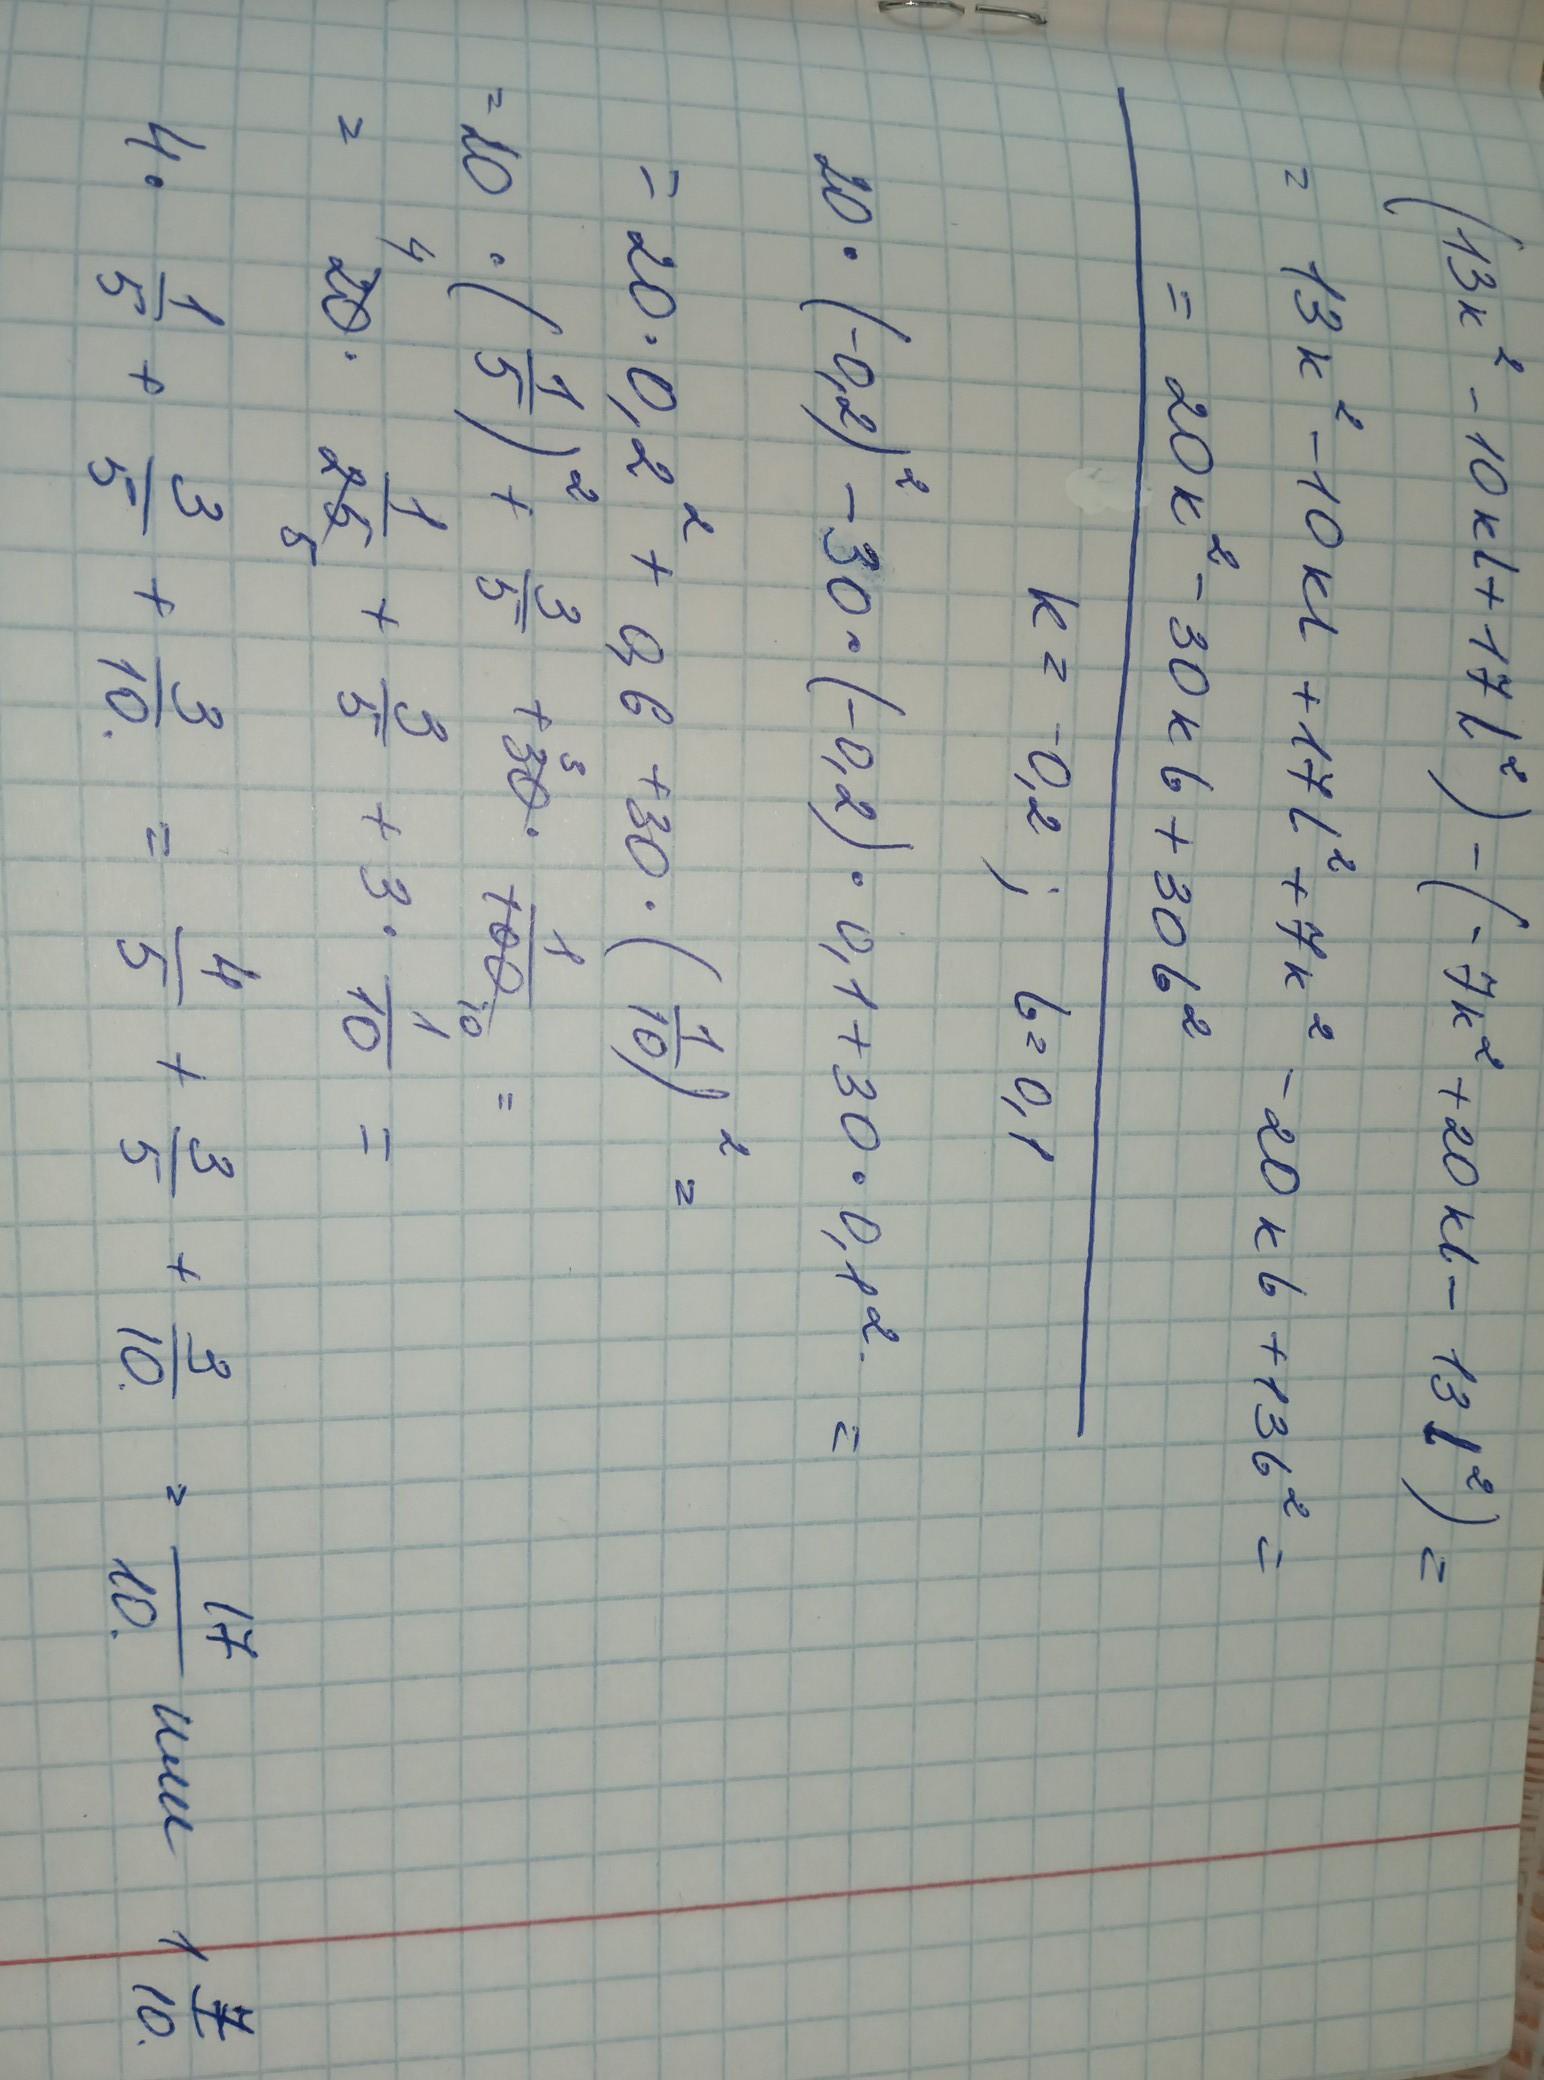 (13к² - 10кl + 17l²) - (-7к² + 20кl - 13l²) =
= 13к² - 10кl + 17l² + 7к² - 20кb + 13b² =
= 20к² - 30кb + 30b²
k = -0,2 ; b = 0,1
20 · (-0,2)² - 30 · (-0,2) · 0,1 + 30 · 0,1². =
= 20 · 0,2² + 0,6 + 30 · (1/10)² =
= 20 · (1/5)² + 3/5 + 30 3 · 1/100 10 =
= 4 20 · 1/25 5 + 3/5 + 3 · 1/10 =
4 · 1/5 + 3/5 + 3/10. = 4/5 + 3/5 + 3/10. = 17/10. или 1 7/10.